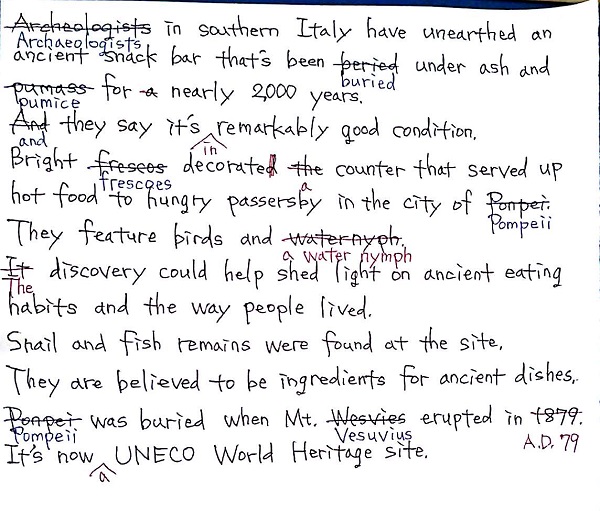 Archeologists in southern Italy have unearthed an
Archaeologists
ancient snack bar that's been beried under ash and
buried
pumass for a nearly 2,000 years.
pumice
And they say it's remarkably good condition.
and
in
Bright frescos decorated the counter that served up
frescoes
a
hot food to hungry passersby in the city of Ponpei.
Pompeii
They feature birds and waternyph.
a water nymph
It discovery could help shed light on ancient eating
The
habits and the way people lived.
Snail and fish remains were found at the site.
They are believed to be ingredients for ancient dishes.
Ponpei was buried when Mt. Wesvies erupted in 1879.
Pompeii
Vesuvius
A.D. 79
It's now UNECO World Heritage site.
a